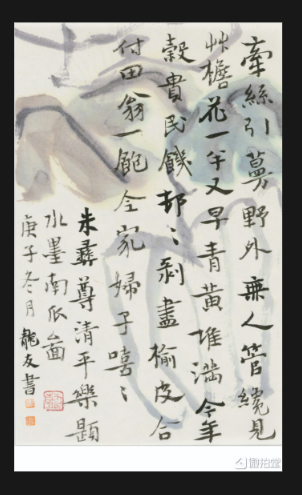 牽絲引蔓野外無人管纔見
艸檐花一半又早青黃堆滿今年
穀貴民饑邨〻剥盡榆皮合
付田翁一飽全家婦子嘻〻
朱彝尊清平樂題
水墨南瓜圖
庚子冬月龍友書